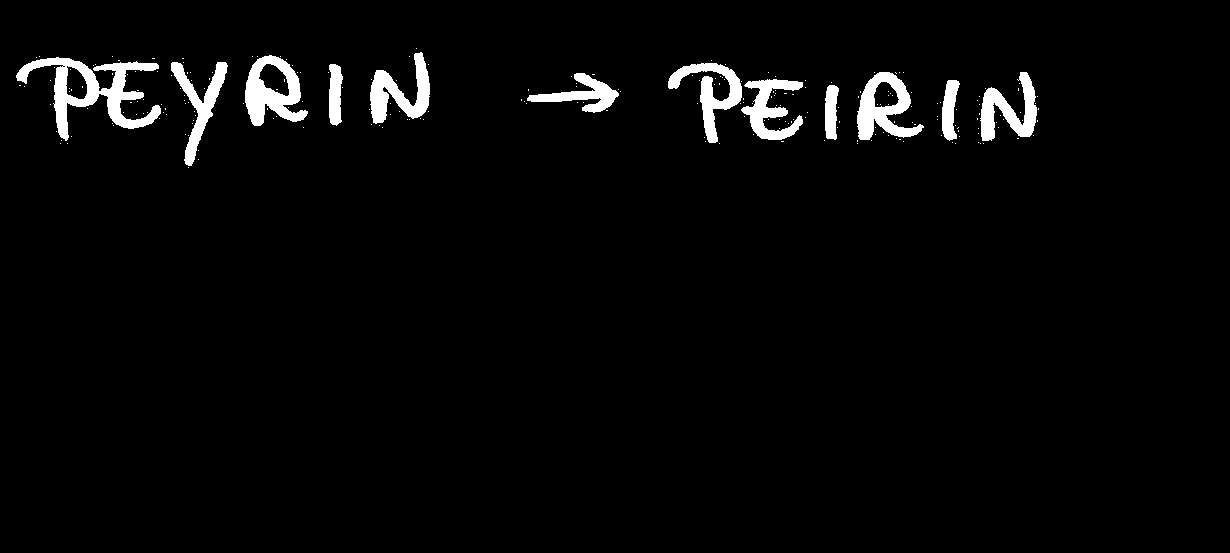 PEYRIN → PEIRIN